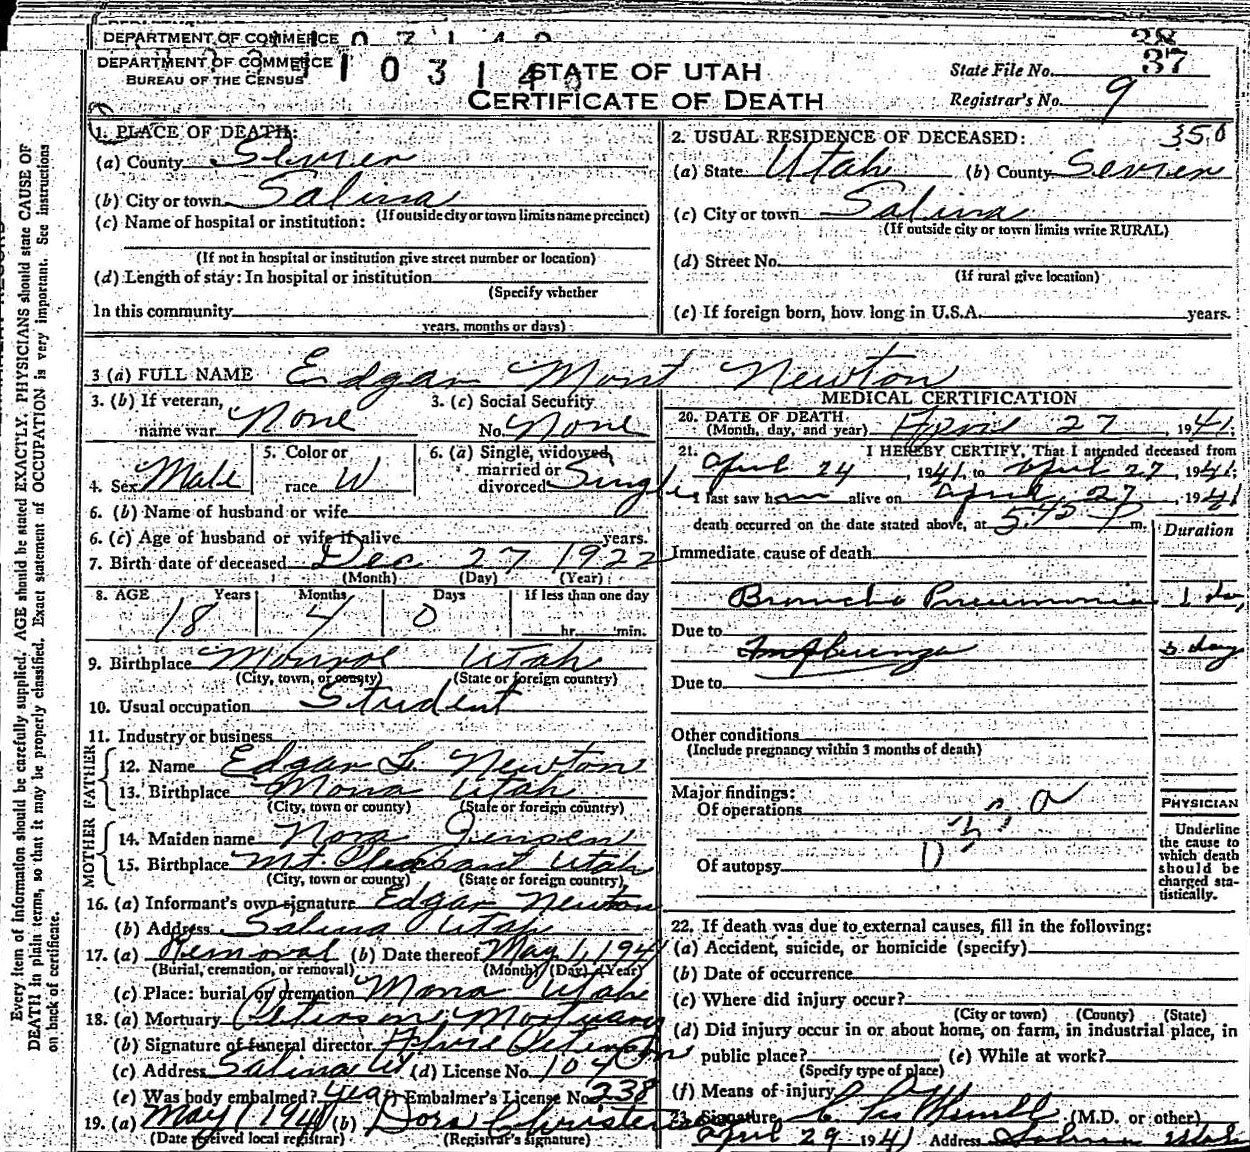 DEPARTMENT OF COMMERCE
DEPARTMENT OF COMMERCE
BUREAU OF THE CENSUS
STATE OF UTAH
CERTIFICATE OF DEATH
38
State File No. 37
Registrar's No. 9
1. PLACE OF DEATH:
(a) County Sevier
(b) City or town Salina
(If outside city or town limits name precinct)
(c) Name of hospital or institution:
(If not in hospital or institution give street number or location)
(d) Length of stay: In hospital or institution
(Specify whether
In this community
years, months or days)
2. USUAL RESIDENCE OF DECEASED: 350
(a) State Utah (b) County Sevier
(c) City or town Salina
(If outside city or town limits write RURAL)
(d) Street No.
(If rural give location)
(e) If foreign born, how long in U.S.A. years.
3 (a) FULL NAME Edgar Mont Newton
3. (b) If veteran, name war None
3. (c) Social Security No. None
4. Sex Male
5. Color or race W
6. (a) Single, widowed, married or divorced Single
6. (b) Name of husband or wife
6. (c) Age of husband or wife if alive years.
7. Birth date of deceased Dec 27 1922
(Month) (Day) (Year)
8. AGE Years Months Days If less than one day
18 4 0 hr. min.
9. Birthplace Monroe Utah
(City, town, or county) (State or foreign country)
10. Usual occupation Student
11. Industry or business
FATHER
12. Name Edgar L. Newton
13. Birthplace Mona Utah
(City, town or county) (State or foreign country)
MOTHER
14. Maiden name Nora Jensen
15. Birthplace Mt. Pleasant Utah
(City, town or county) (State or foreign country)
16. (a) Informant's own signature Edgar Newton
(b) Address Salina Utah
17. (a) Removal (b) Date thereof May 1, 1941
(Burial, cremation, or removal) (Month) (Day) (Year)
(c) Place: burial or cremation Mona Utah
18. (a) Mortuary Peterson Mortuary
(b) Signature of funeral director Peterson
(c) Address Salina Ut (d) License No. 104
(e) Was body embalmed? yes Embalmer's License No. 238
19. (a) May 1 1941 (b) Dora Christensen
(Date received local registrar) (Registrar's signature)
MEDICAL CERTIFICATION
20. DATE OF DEATH
(Month, day, and year) April 27, 1941
21. I HEREBY CERTIFY, That I attended deceased from
April 24, 1941, to April 27, 1941;
I last saw him alive on April 27, 1941
death occurred on the date stated above, at 5:45 P m.
Duration
Immediate cause of death
Broncho Pneumonia 1 day
Due to Influenza 3 days
Due to
Other conditions
(Include pregnancy within 3 months of death)
Major findings:
Of operations
Of autopsy
PHYSICIAN
Underline
the cause to
which death
should be
charged sta-
tistically.
22. If death was due to external causes, fill in the following:
(a) Accident, suicide, or homicide (specify)
(b) Date of occurrence
(c) Where did injury occur?
(City or town) (County) (State)
(d) Did injury occur in or about home, on farm, in industrial place, in
public place? (e) While at work?
(Specify type of place)
(f) Means of injury
23. Signature (M.D. or other)
April 29 1941 Address Salina Utah
Every item of information should be carefully supplied. AGE should be stated EXACTLY. PHYSICIANS should state CAUSE OF
DEATH in plain terms, so that it may be properly classified. Exact statement of OCCUPATION is very important. See instructions
on back of certificate.